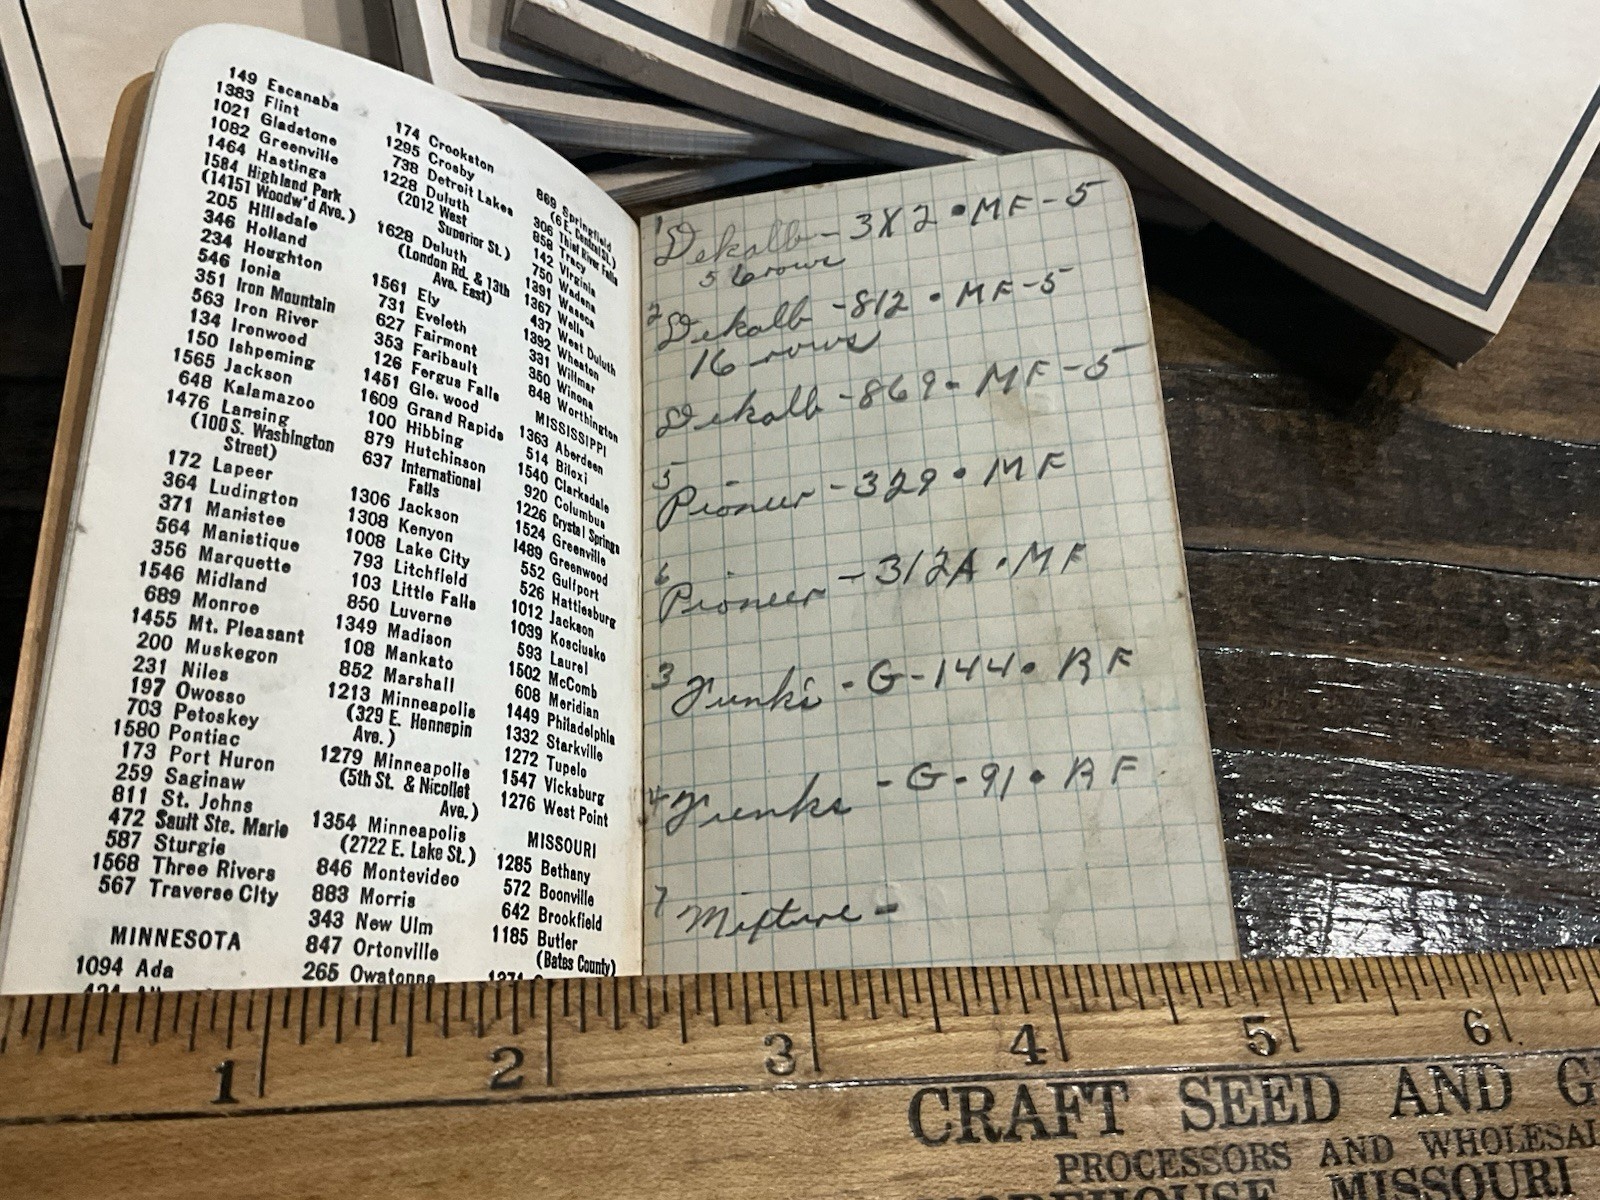 149 Escanaba
1383 Flint
1021 Gladstone
1082 Greenville
1464 Hastings
1584 Highland Park
(14151 Woodw'd Ave.)
205 Hillsdale
346 Holland
234 Houghton
546 Ionia
351 Iron Mountain
563 Iron River
134 Ironwood
150 Ishpeming
1565 Jackson
648 Kalamazoo
1476 Lansing
(100 S. Washington
Street)
172 Lapeer
364 Ludington
371 Manistee
564 Manistique
356 Marquette
1546 Midland
689 Monroe
1455 Mt. Pleasant
200 Muskegon
231 Niles
197 Owosso
703 Petoskey
1580 Pontiac
173 Port Huron
259 Saginaw
811 St. Johns
472 Sault Ste. Marie
587 Sturgis
1568 Three Rivers
567 Traverse City
MINNESOTA
1094 Ada
174 Crookston
1295 Crosby
738 Detroit Lakes
1228 Duluth
(2012 West
Superior St.)
1628 Duluth
(London Rd. & 13th
Ave. East)
1561 Ely
731 Eveleth
627 Fairmont
353 Faribault
126 Fergus Falls
1451 Glenwood
1609 Grand Rapids
100 Hibbing
879 Hutchinson
637 International
Falls
1306 Jackson
1308 Kenyon
1008 Lake City
793 Litchfield
103 Little Falls
850 Luverne
1349 Madison
108 Mankato
852 Marshall
1213 Minneapolis
(329 E. Hennepin
Ave.)
1279 Minneapolis
(5th St. & Nicollet
Ave.)
1354 Minneapolis
(2722 E. Lake St.)
846 Montevideo
883 Morris
343 New Ulm
847 Ortonville
265 Owatonna
869 Springfield
(6 E. Central St.)
306 Thief River Falls
858 Tracy
142 Virginia
750 Wadena
1391 Waseca
1367 Wells
437 West Duluth
1392 Wheaton
331 Willmar
350 Winona
848 Worthington
MISSISSIPPI
1363 Aberdeen
514 Biloxi
1540 Clarksdale
920 Columbus
1226 Crystal Springs
1524 Greenville
1489 Greenwood
552 Gulfport
526 Hattiesburg
1012 Jackson
1039 Kosciusko
593 Laurel
1502 McComb
608 Meridian
1449 Philadelphia
1332 Starkville
1272 Tupelo
1547 Vicksburg
1276 West Point
MISSOURI
1285 Bethany
572 Boonville
642 Brookfield
1185 Butler
(Bates County)
1 Dekalb - 3X2 • MF - 5
56 rows
2 Dekalb - 812 • MF - 5
16 rows
Dekalb - 869 - MF - 5
5 Pioneer - 329 • MF
6 Pioneer - 312A • MF
3 Funks - G - 144 • RF
4 Funks - G - 91 • RF
7 Mixture -
1 2 3 4 5 6
CRAFT SEED AND G
PROCESSORS AND WHOLESAL
MISSOURI